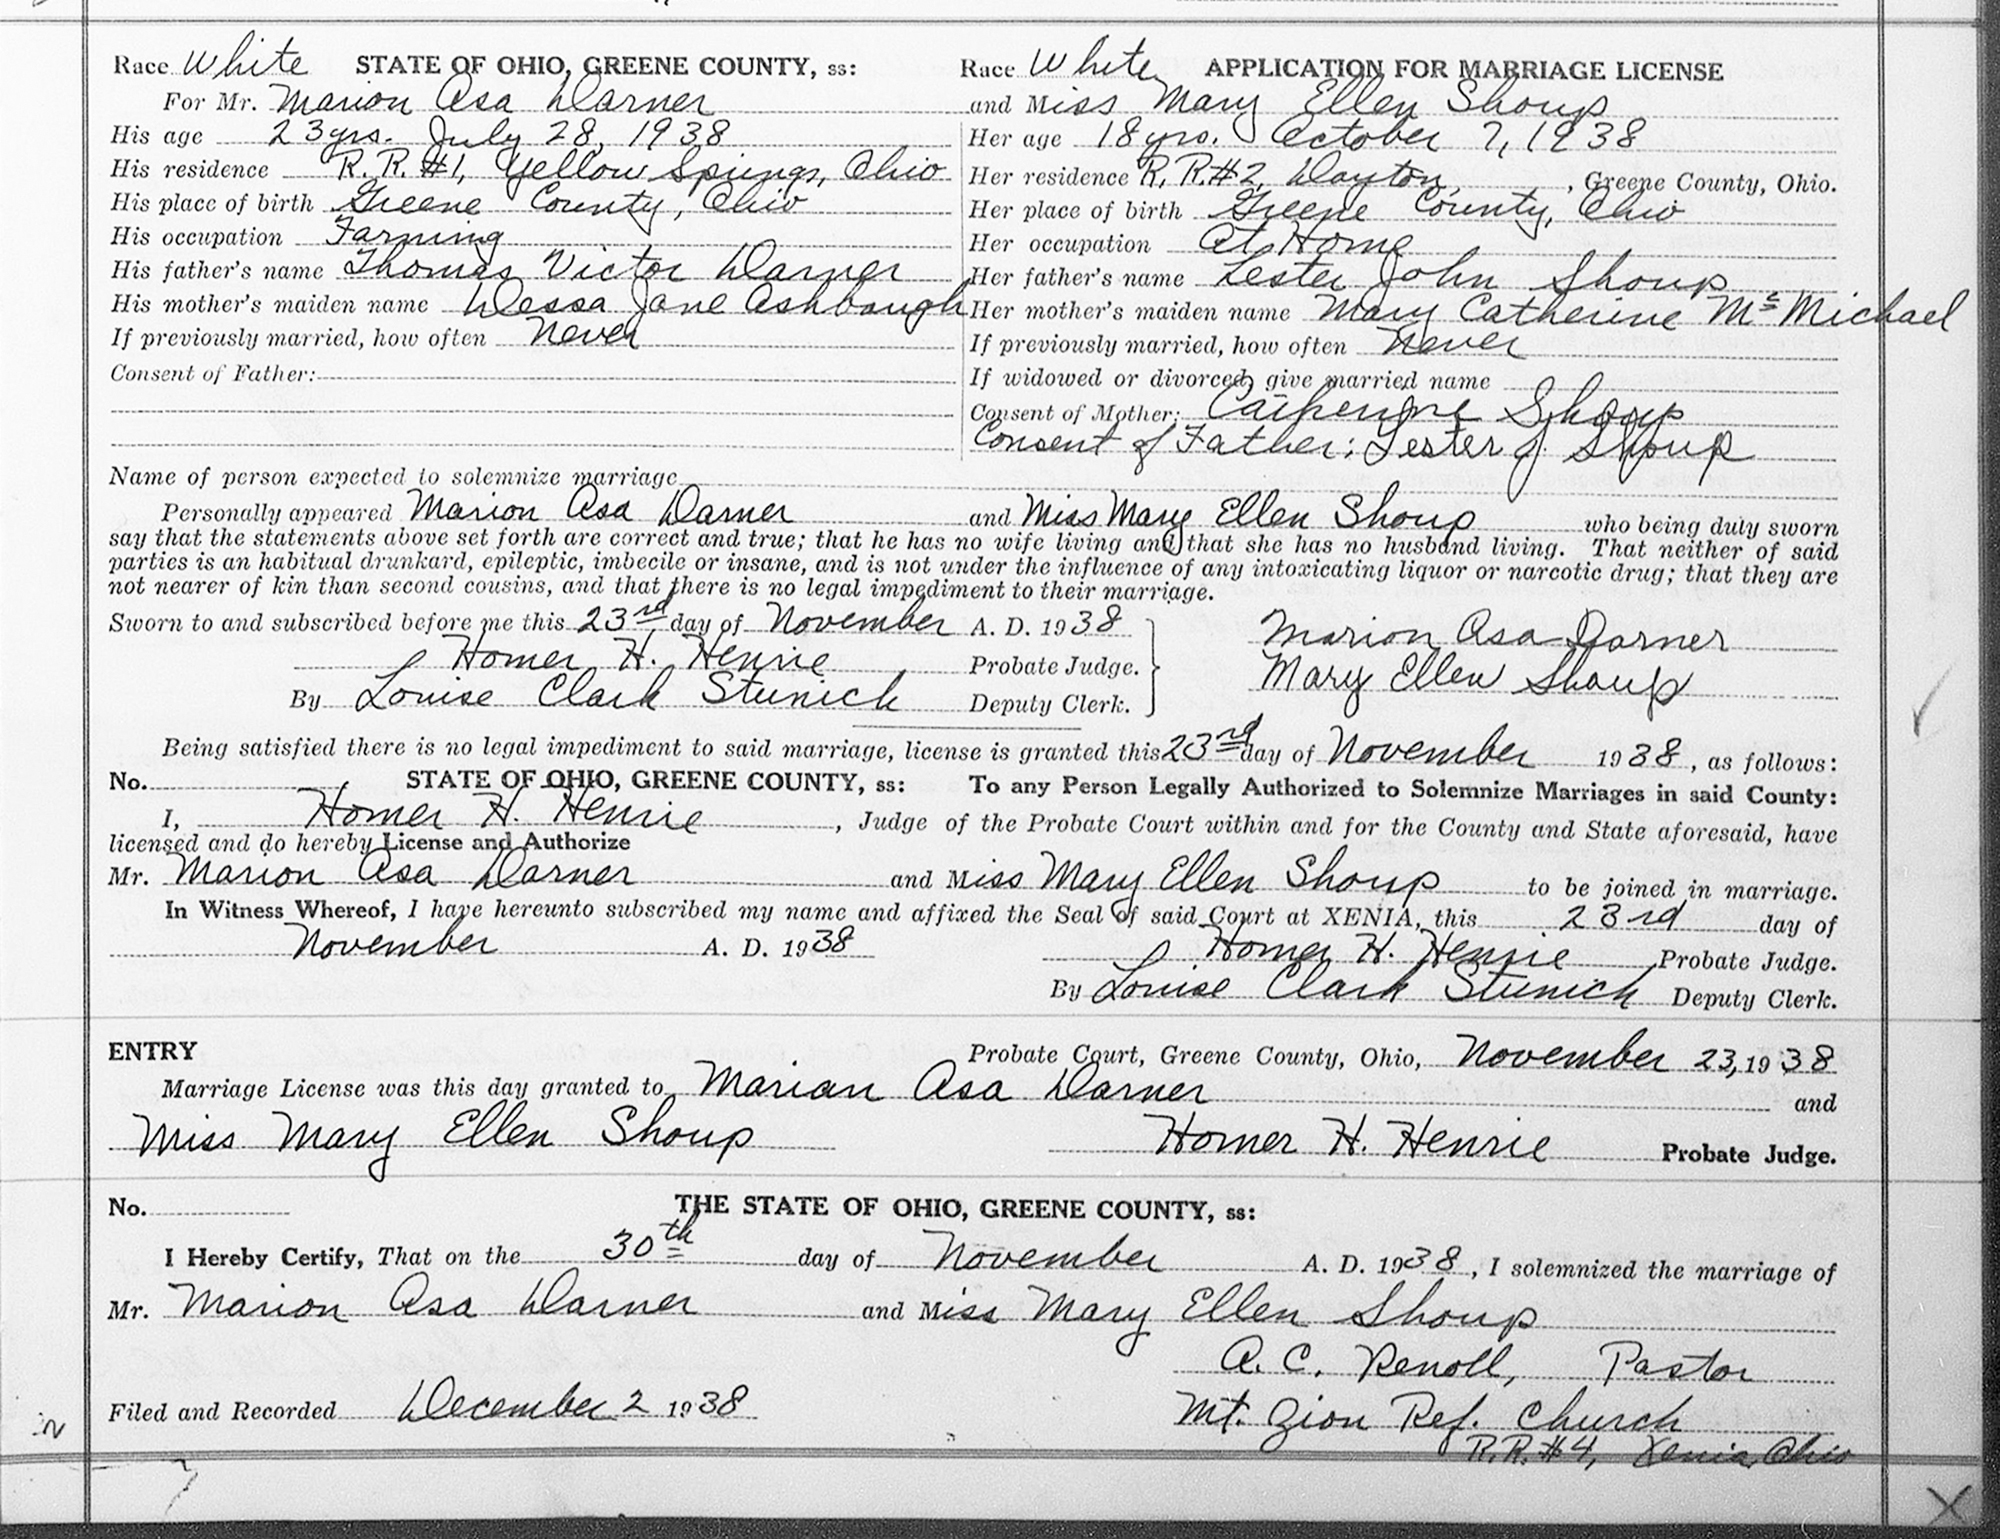 Race White STATE OF OHIO, GREENE COUNTY, ss: Race White APPLICATION FOR MARRIAGE LICENSE
For Mr. Marion Asa Darner and Miss Mary Ellen Shoup
His age 23 yrs. July 28, 1938 Her age 18 yrs. October 7, 1938
His residence R. R. #1, Yellow Springs, Ohio Her residence R. R. #2, Dayton, , Greene County, Ohio.
His place of birth Greene County, Ohio Her place of birth Greene County, Ohio
His occupation Farming Her occupation At Home
His father's name Thomas Victor Darner Her father's name Lester John Shoup
His mother's maiden name Dessa Jane Ashbaugh Her mother's maiden name Mary Catherine McMichael
If previously married, how often Never If previously married, how often Never
Consent of Father: If widowed or divorced, give married name
Consent of Mother: Catherine Shoup
Consent of Father: Lester J. Shoup
Name of person expected to solemnize marriage
Personally appeared Marion Asa Darner and Miss Mary Ellen Shoup who being duly sworn
say that the statements above set forth are correct and true; that he has no wife living and that she has no husband living. That neither of said
parties is an habitual drunkard, epileptic, imbecile or insane, and is not under the influence of any intoxicating liquor or narcotic drug; that they are
not nearer of kin than second cousins, and that there is no legal impediment to their marriage.
Sworn to and subscribed before me this 23rd day of November A. D. 1938 Marion Asa Darner
Homer H. Henrie Probate Judge. Mary Ellen Shoup
By Louise Clark Stunich Deputy Clerk.
Being satisfied there is no legal impediment to said marriage, license is granted this 23rd day of November 1938, as follows:
No. STATE OF OHIO, GREENE COUNTY, ss: To any Person Legally Authorized to Solemnize Marriages in said County:
I, Homer H. Henrie , Judge of the Probate Court within and for the County and State aforesaid, have
licensed and do hereby License and Authorize
Mr. Marion Asa Darner and Miss Mary Ellen Shoup to be joined in marriage.
In Witness Whereof, I have hereunto subscribed my name and affixed the Seal of said Court at XENIA, this 23rd day of
November A. D. 1938 Homer H. Henrie Probate Judge.
By Louise Clark Stunich Deputy Clerk.
ENTRY Probate Court, Greene County, Ohio, November 23, 1938
Marriage License was this day granted to Marian Asa Darner and
Miss Mary Ellen Shoup Homer H. Henrie Probate Judge.
No. THE STATE OF OHIO, GREENE COUNTY, ss:
I Hereby Certify, That on the 30th day of November A. D. 1938, I solemnized the marriage of
Mr. Marion Asa Darner and Miss Mary Ellen Shoup
A. C. Renoll, Pastor
Filed and Recorded December 2 1938 Mt. Zion Ref. Church
R. R. #4, Xenia, Ohio
X